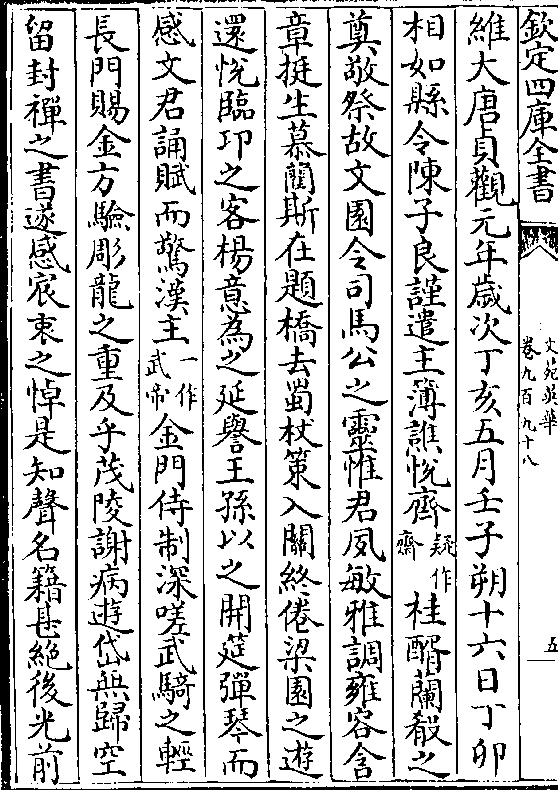 欽定四庫全書
文苑英華
卷九百九十八
五
維大唐貞觀元年歲次丁亥五月壬子朔十六日丁卯
相如縣令陳子良謹遣主簿譙悅齊疑作齋桂醑蘭殽之
奠敬祭故文園令司馬公之靈惟君夙敏雅調雍容含
章挺生慕藺斯在題橋去蜀杖策入關終倦梁園之遊
還悅臨卭之客楊意為之延譽王孫以之開筵彈琴而
感文君誦賦而驚漢主一作武帝金門侍制深嗟武騎之輕
長門賜金方驗彫龍之重及乎茂陵謝病遊岱無歸空
留封禪之書遂感宸衷之悼是知聲名籍甚絕後光前